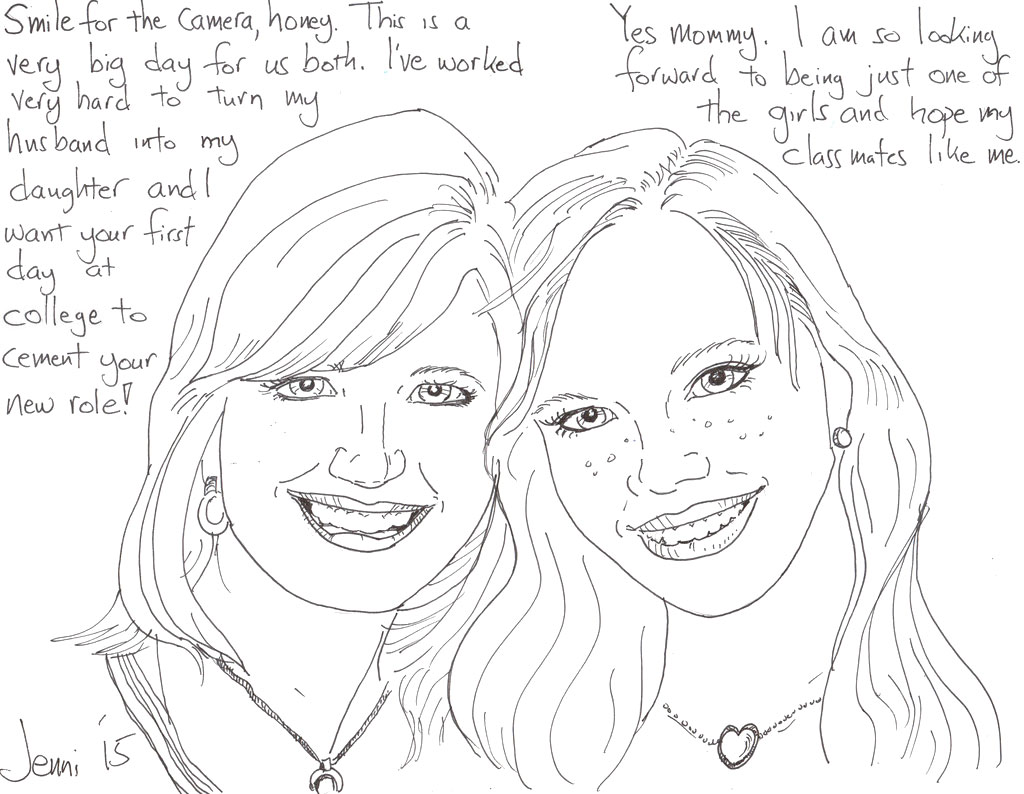 Smile for the Camera, honey. This is a
very big day for us both. I've worked
very hard to turn my
husband into my
daughter and I
want your first
day at
college to
cement your
new role!
Yes Mommy. I am so looking
forward to being just one of
the girls and hope my
classmates like me.
Jenni '15